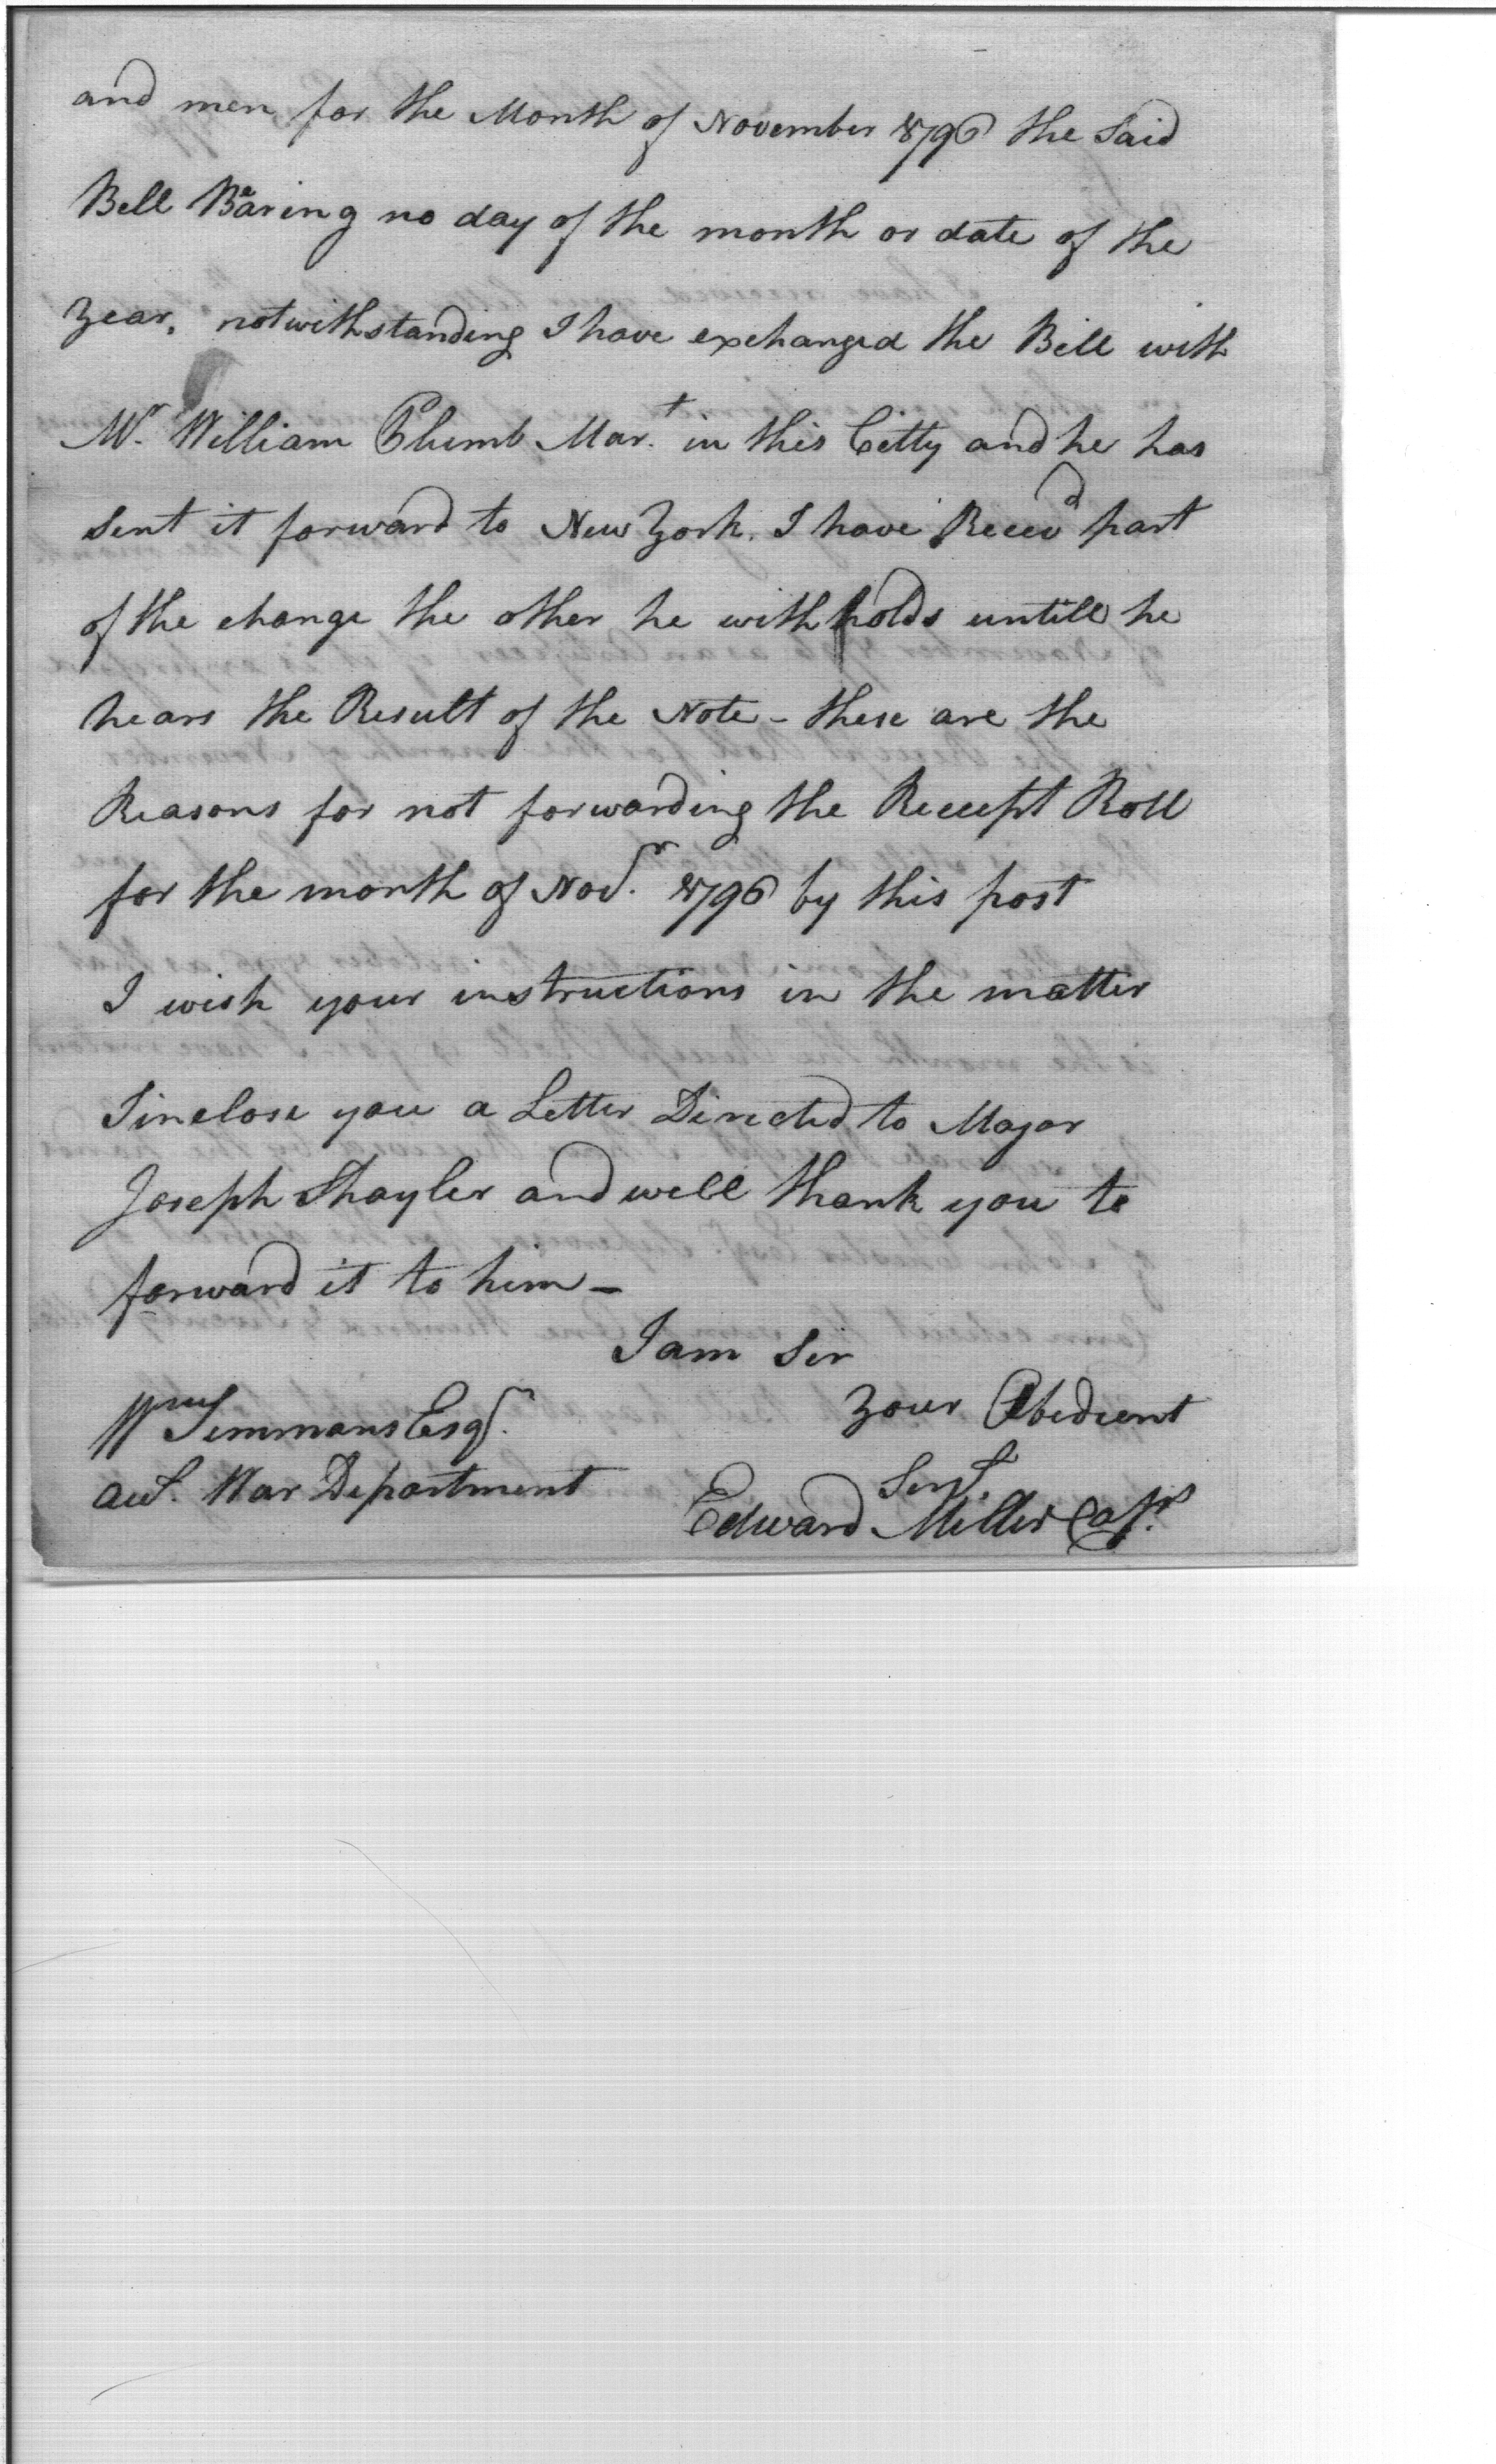 and men for the Month of November 1796 the Said
Bill Bearing no day of the month or date of the
Year, notwithstanding I have exchanged the Bill with
Mr. William Plumb Mart. in this Citty and he has
Sent it forward to New York. I have Recevd part
of the change the other he withholds untill he
hears the Result of the Note - these are the
Reasons for not forwarding the Receept Roll
for the month of Novr. 1796 by this post
I wish your instructions in the matter
I inclose you a Letter Directed to Major
Joseph Shayler and will thank you to
forward it to him -
I am Sir
Your Obedient
Servt.
Wm Simmons Esqr.
Act. War Department
Edward Miller Capt.